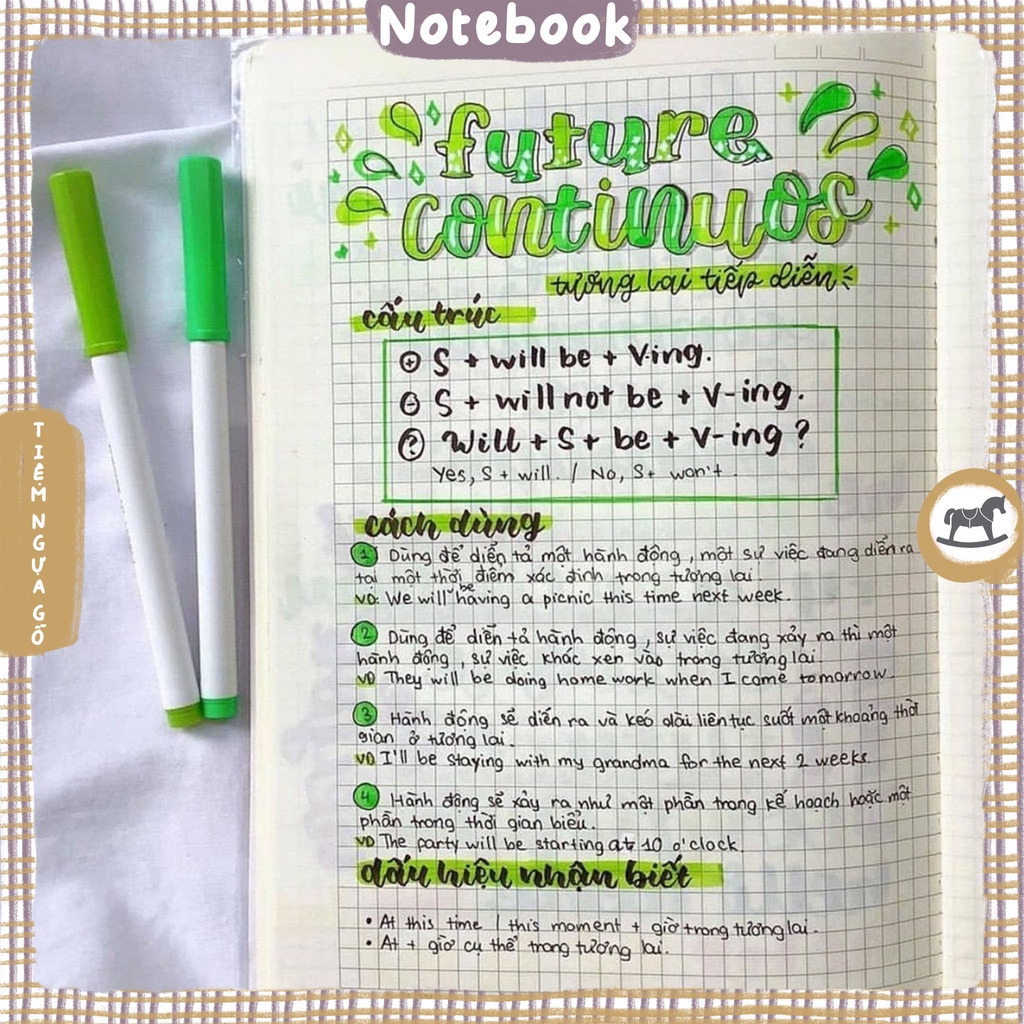 Notebook
future
continuos
tương lai tiếp diễn
cấu trúc
(+) S + will be + V-ing.
(-) S + will not be + V-ing.
(?) Will + S + be + V-ing?
Yes, S + will. / No, S + won't
cách dùng
1 Dùng để diễn tả một hành động, một sự việc đang diễn ra
tại một thời điểm xác định trong tương lai.
VD: We will be having a picnic this time next week.
2 Dùng để diễn tả hành động, sự việc đang xảy ra thì một
hành động, sự việc khác xen vào trong tương lai.
VD They will be doing home work when I come tomorrow.
3 Hành động sẽ diễn ra và kéo dài liên tục suốt một khoảng thời
gian ở tương lai.
VD I'll be staying with my grandma for the next 2 weeks.
4 Hành động sẽ xảy ra như một phần trong kế hoạch hoặc một
phần trong thời gian biểu.
VD The party will be starting at 10 o'clock.
dấu hiệu nhận biết
• At this time / this moment + giờ trong tương lai.
• At + giờ cụ thể trong tương lai.
TIỆM NGỰA GỖ